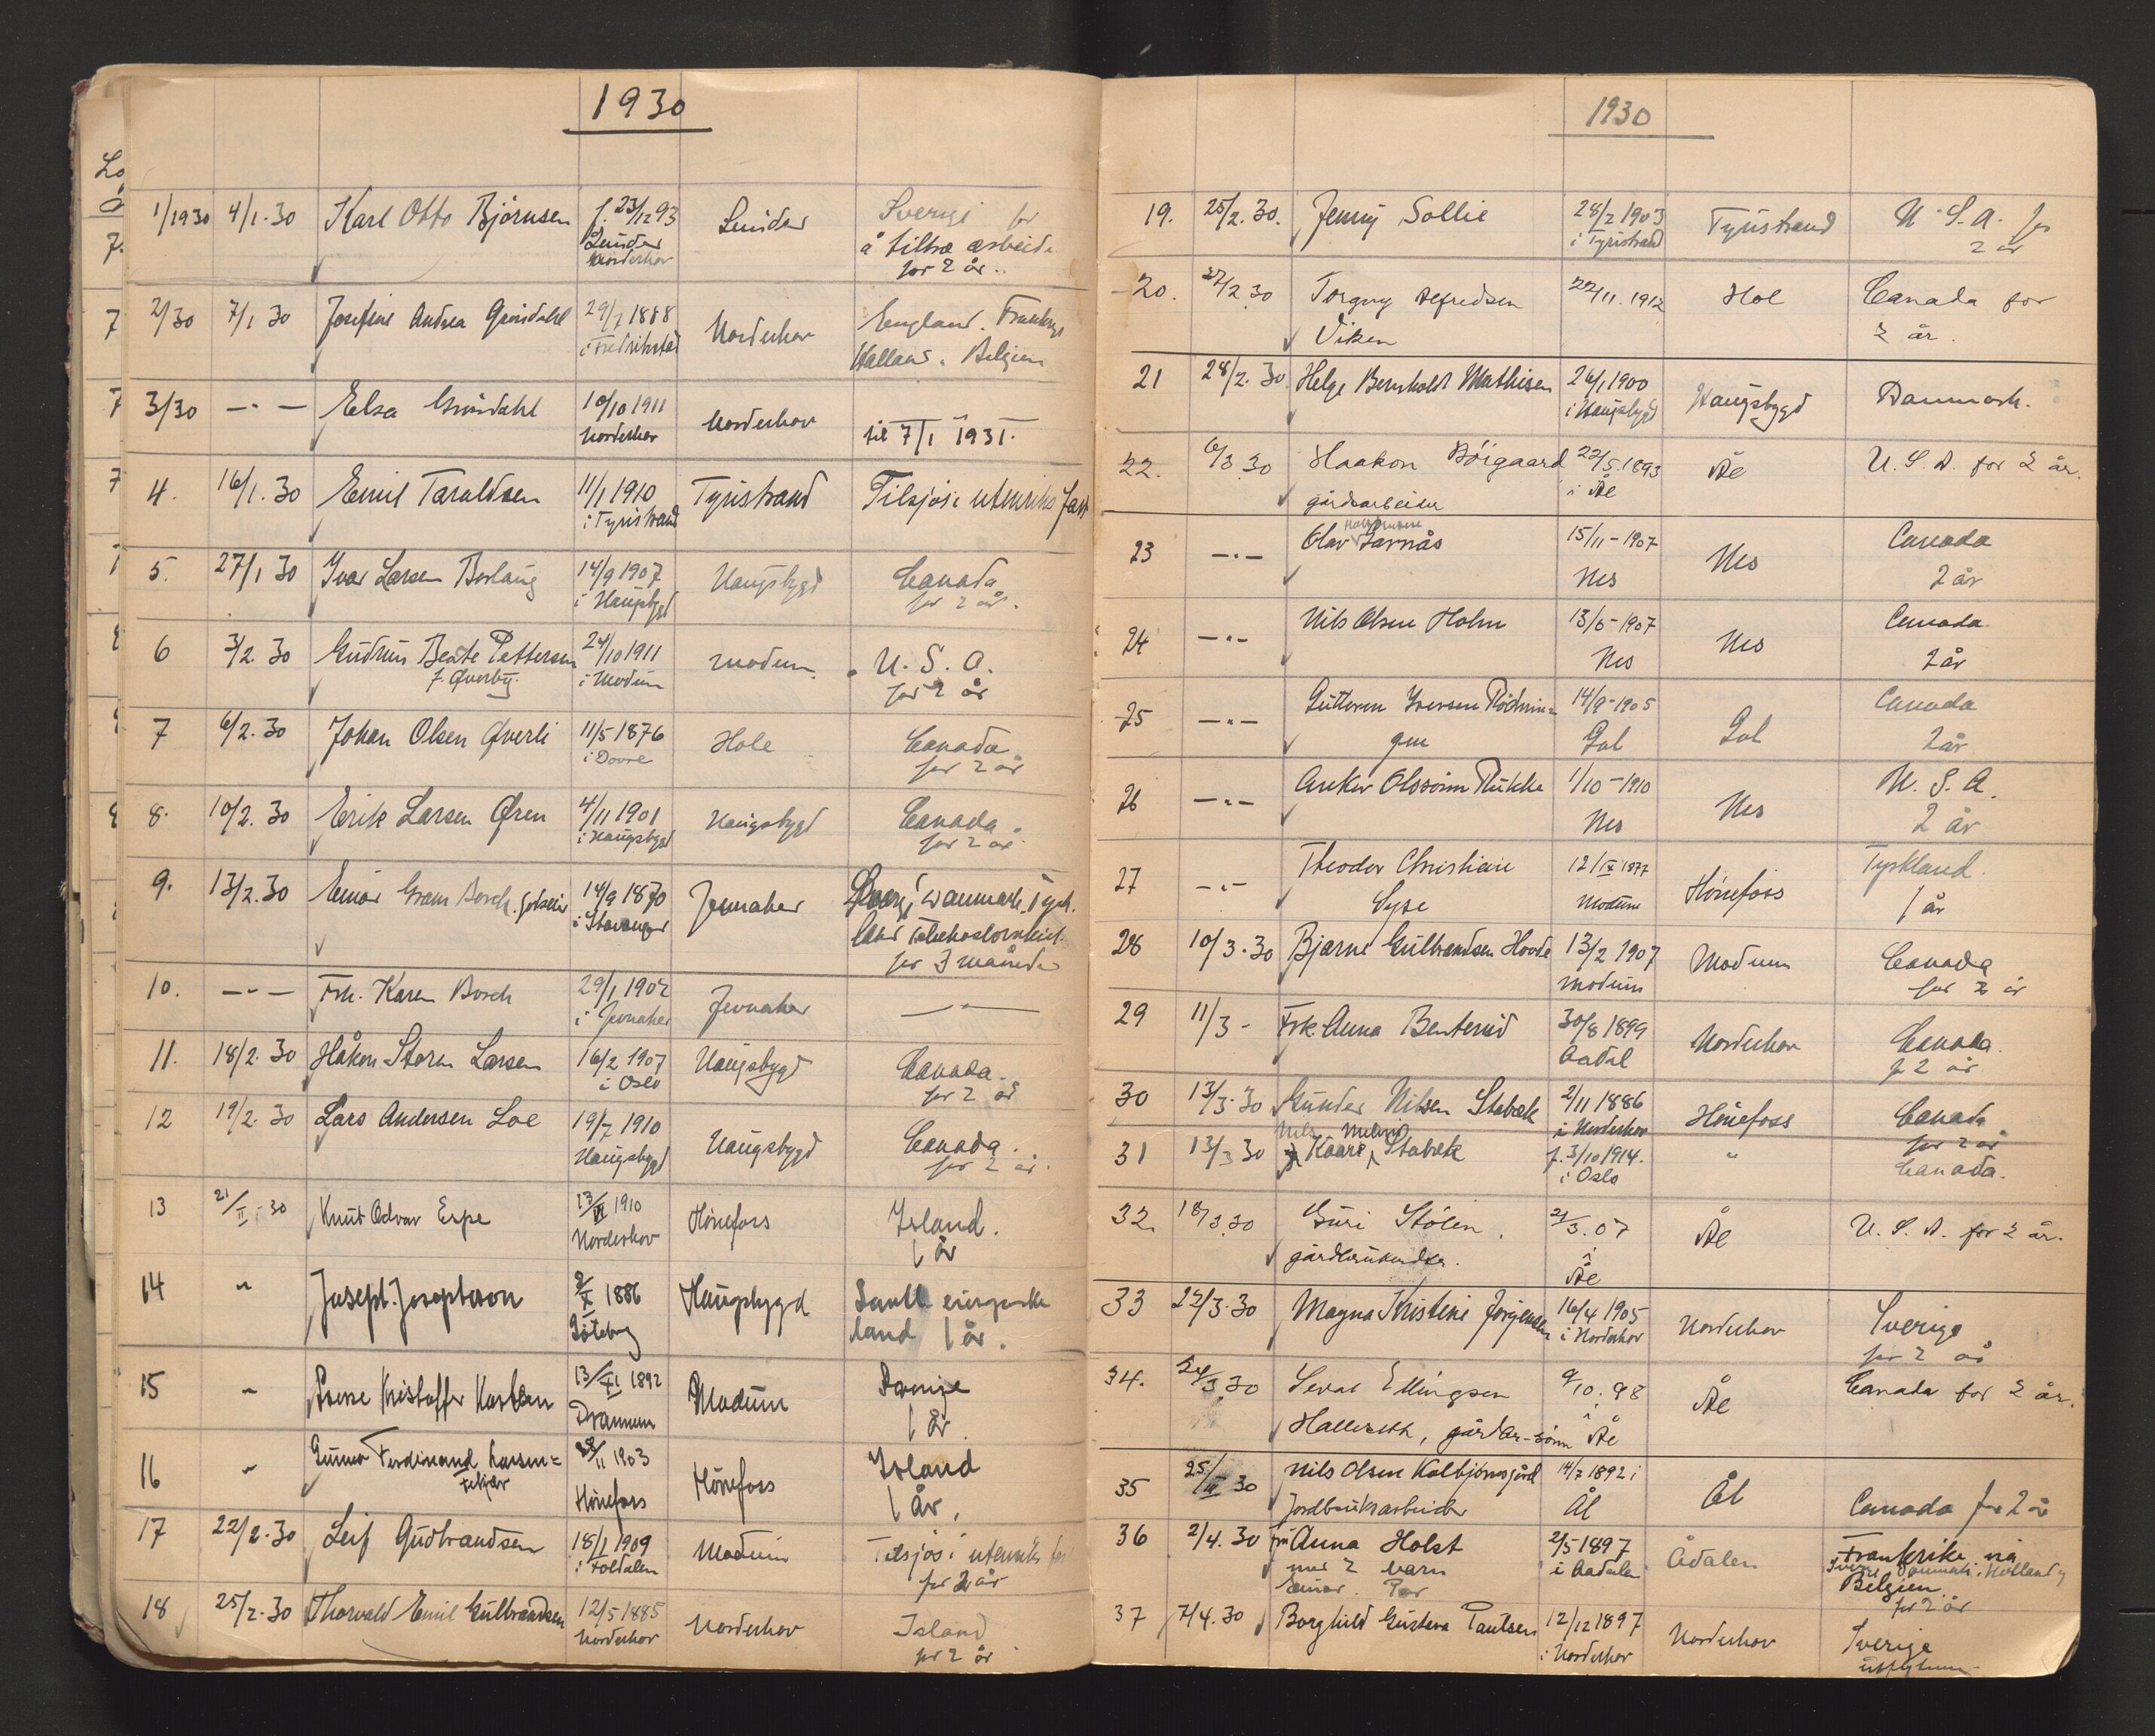 1930
1/1930 4/1.30 Karl Otto Bjørnsen f. 23/12 93 Lunder Norderhov Lunder Sverige for
å tiltræ arbeide
for 2 år.
2/30 7/1 30 Josefine Andrea Grindahl 29/7 1888 i Fredrikstad Norderhov England. Frankrige
Holland. Belgien
3/30 —"— Elsa Grindahl 10/10 1911 Norderhov Norderhov til 7/I 1931.
4. 16/1.30 Emil Taraldsen 11/1 1910 i Tyristrand Tyristrand Tilsjøs i utenriks fart
5. 27/1 30 Ivar Larsen Borlaug 14/9 1907 i Haugsbygd Haugsbygd Canada
for 2 år.
6 3/2.30 Gudrun Beate Pettersen 24/10 1911 i Modum Modum U.S.A.
f. Øverby. for 2 år
7 6/2.30 Johan Olsen Øverli 11/5 1876 i Dovre Hole Canada
for 2 år
8. 10/2.30 Erik Larsen Øren 4/11 1901 i Haugsbygd Haugsbygd Canada.
for 2 år.
9. 13/2.30 Einar Gram Borch. 14/9 1870 i Stavanger Jevnaker Danmark. Tysk.
land
for 3 måneder
10. —"— Frk. Karen Borch 29/1 1902 i Jevnaker Jevnaker —"—
11. 18/2.30 Håkon Storm Larsen 16/2 1907 i Oslo Haugsbygd Canada.
for 2 år
12 19/2.30 Lars Andersen Loe 19/7 1910 Haugsbygd Haugsbygd Canada.
for 2 år.
13 21/II.30 Knut Advar Espe 13/VI 1910 Norderhov Hønefoss Island.
1 år
14 " Joseph Josephson 2/X 1886 Göteborg Haugsbygd Samtl. europeiske
land 1 år.
15 " Kristoffer Karlsen 13/XI 1892 Drammen Modum Sverige
1 år
16 " Gunnar Ferdinand Larsen= 28/11 1903 Hønefoss Hønefoss Island
1 år.
17 22/2.30 Leif Gudbrandsen 18/1 1909 i Foldalen Modum Tilsjøs i utenriks fart
for 2 år
18 25/2.30 Thorvald Emil Gulbrandsen 12/5 1885 Norderhov Norderhov Island
for 2 år
1930
19. 25/2.30. Jenny Sollie 28/2 1903 i Tyristrand Tyristrand U.S.A. for
2 år
20. 27/2 30 Torguy Alfredsen 22/11.1912 Hol Canada for
Viken 2 år.
21 28/2.30. Helge Bernhold Mathisen 26/1 1900 i Haugsbygd Haugsbygd Danmark.
22. 6/3 30 Haakon Böigaard 22/5.1893 i Ål Ål U.S.A. for 2 år.
gårdsarbeider
23 —"— Olav Jarnås 15/11-1907 Nes Nes Canada
2 år
24 —"— Nils Olsen Holm 13/6-1907 Nes Nes Canada
2 år
25 —"— Guttorm Iversen Rödnin= 14/9-1905 Gol Gol Canada
gen 2 år
26 —"— Anker Olssönn Rukke 1/10-1910 Nes Nes U.S.A.
2 år
27 —"— Theodor Christian 12/IX 1877 Modum Hönefoss Tyskland.
Syse 1 år
28 10/3.30 Bjarne Gulbrandsen Hovde 13/2 1907 Modum Modum Canada
for 2 år
29 11/3 - Frk. Anna Benterud 30/8 1899 Aadal Norderhov Canada.
f 2 år.
30 13/3.30 Gunder Nilsen Stabæk 2/11 1886 i Norderhov Hönefoss Canada
for 2 år
31 13/3 30 Kaare Stabæk f. 3/10 1914. i Oslo " Canada.
32. 18/3.30 Guri Stölen. 21/3.07 i Ål Ål U.S.A. for 2 år.
gårdbrukerdtr.
33 22/3.30 Magna Kristine Jørgensen 16/4 1905 i Norderhov Norderhov Sverige
for 2 år
34. 24/3.30 Sevat Ellingsen 9/10.98 i Ål Ål Canada for 2 år.
Hallerseth, gårdbr-sønn
35 25/III 30 Nils Olsen Kolbjörnsgård 14/7 1892 i Ål Ål Canada for 2 år
Jordbruksarbeider
36 2/4.30 Fru Anna Holst 2/5 1897 i Aadalen Ådalen Frankrike via
med 2 barn Sverige Danmark. Holland og
Einar. Per Belgien.
for 2 år
37 7/4.30 Borghild Gustava Paulsen 12/12 1897 i Norderhov Norderhov Sverige